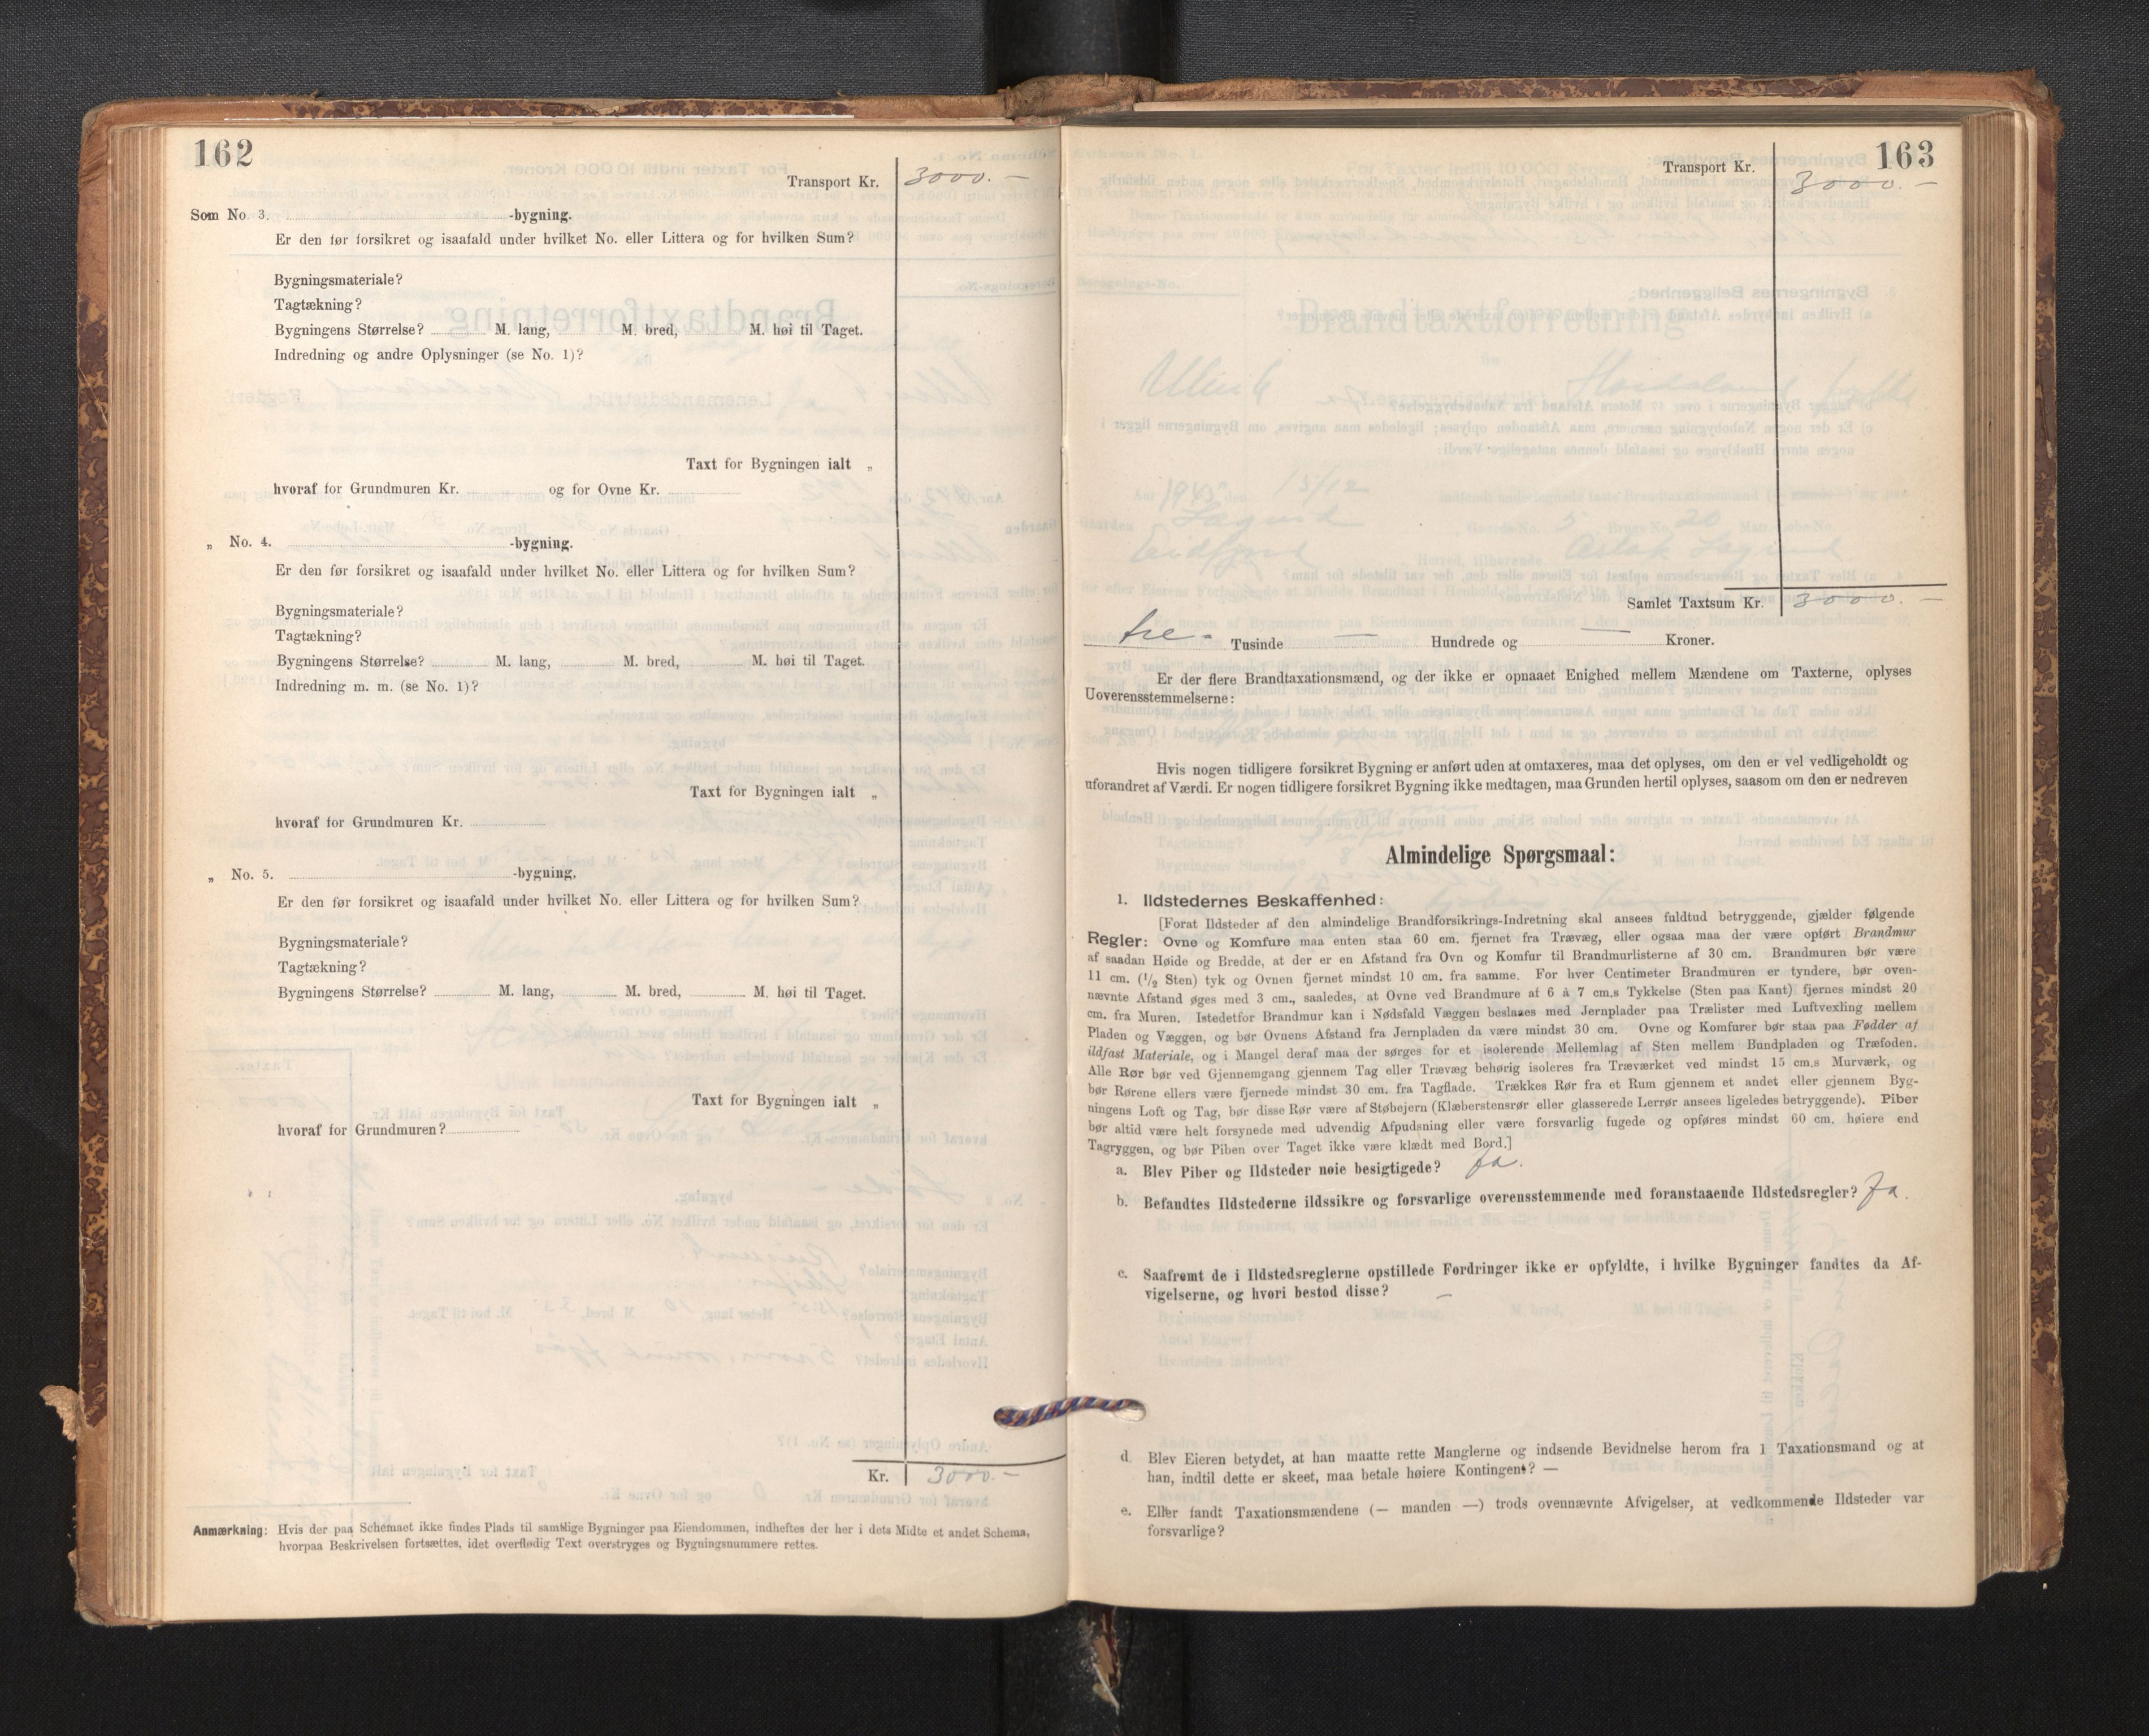 162
Transport Kr. 3000.–
Som No. 3. -bygning.
Er den før forsikret og isaafald under hvilket No. eller Littera og for hvilken Sum?
Bygningsmateriale?
Tagtækning?
Bygningens Størrelse? M. lang, M. bred, M. høi til Taget.
Indredning og andre Oplysninger (se No. 1)?
Taxt for Bygningen ialt „
hvoraf for Grundmuren Kr. og for Ovne Kr.
„ No. 4. -bygning.
Er den før forsikret og isaafald under hvilket No. eller Littera og for hvilken Sum?
Bygningsmateriale?
Tagtækning?
Bygningens Størrelse? M. lang, M. bred, M. høi til Taget.
Indredning m. m. (se No. 1)?
Taxt for Bygningen ialt „
hvoraf for Grundmuren Kr.
„ No. 5. -bygning,
Er den før forsikret og isaafald under hvilket No. eller Littera og for hvilken Sum?
Bygningsmateriale?
Tagtækning?
Bygningens Størrelse? M. lang, M. bred, M. høi til Taget.
Taxt for Bygningen ialt „
hvoraf for Grundmuren?
Kr. 3000.–
Anmærkning: Hvis der paa Schemaet ikke findes Plads til samtlige Bygninger paa Eiendommen, indheftes der her i dets Midte et andet Schema,
hvorpaa Beskrivelsen fortsættes, idet overflødig Text overstryges og Bygningsnummere rettes.
163
Transport Kr. 3000.–
Samlet Taxtsum Kr. 3000.–
tre- Tusinde – Hundrede og – Kroner.
Er der flere Brandtaxationsmænd, og der ikke er opnaaet Enighed mellem Mændene om Taxterne, oplyses
Uoverensstemmelserne:
Hvis nogen tidligere forsikret Bygning er anført uden at omtaxeres, maa det oplyses, om den er vel vedligeholdt og
uforandret af Værdi. Er nogen tidligere forsikret Bygning ikke medtagen, maa Grunden hertil oplyses, saasom om den er nedreven
Almindelige Spørgsmaal:
1. Ildstedernes Beskaffenhed:
[Forat Ildsteder af den almindelige Brandforsikrings-Indretning skal ansees fuldtud betryggende, gjælder følgende
Regler: Ovne og Komfure maa enten staa 60 cm. fjernet fra Trævæg, eller ogsaa maa der være opført Brandmur
af saadan Høide og Bredde, at der er en Afstand fra Ovn og Komfur til Brandmurlisterne af 30 cm. Brandmuren bør være
11 cm. (1/2 Sten) tyk og Ovnen fjernet mindst 10 cm. fra samme. For hver Centimeter Brandmuren er tyndere, bør oven-
nævnte Afstand øges med 3 cm., saaledes, at Ovne ved Brandmure af 6 à 7 cm.s Tykkelse (Sten paa Kant) fjernes mindst 20
cm. fra Muren. Istedetfor Brandmur kan i Nødsfald Væggen beslaaes med Jernplader paa Trælister med Luftvexling mellem
Pladen og Væggen, og bør Ovnens Afstand fra Jernpladen da være mindst 30 cm. Ovne og Komfurer bør staa paa Fødder af
ildfast Materiale, og i Mangel deraf maa der sørges for et isolerende Mellemlag af Sten mellem Bundpladen og Træfoden.
Alle Rør bør ved Gjennemgang gjennem Tag eller Trævæg behørig isoleres fra Træværket ved mindst 15 cm.s Murværk, og
bør Rørene ellers være fjernede mindst 30 cm. fra Tagflade. Trækkes Rør fra et Rum gjennem et andet eller gjennem Byg-
ningens Loft og Tag, bør disse Rør være af Støbejern (Klæberstensrør eller glasserede Lerrør ansees ligeledes betryggende). Piber
bør altid være helt forsynede med udvendig Afpudsning eller være forsvarlig fugede og opføres mindst 60 cm. høiere end
Tagryggen, og bør Piben over Taget ikke være klædt med Bord.]
a. Blev Piber og Ildsteder nøie besigtigede? Ja.
b. Befandtes Ildstederne ildssikre og forsvarlige overensstemmende med foranstaaende Ildstedsregler? Ja.
c. Saafremt de i Ildstedsreglerne opstillede Fordringer ikke er opfyldte, i hvilke Bygninger fandtes da Af-
vigelserne, og hvori bestod disse? –
d. Blev Eieren betydet, at han maatte rette Manglerne og indsende Bevidnelse herom fra 1 Taxationsmand og at
han, indtil dette er skeet, maa betale høiere Kontingent? —
e. Eller fandt Taxationsmændene (— manden —) trods ovennævnte Afvigelser, at vedkommende Ildsteder var
forsvarlige?